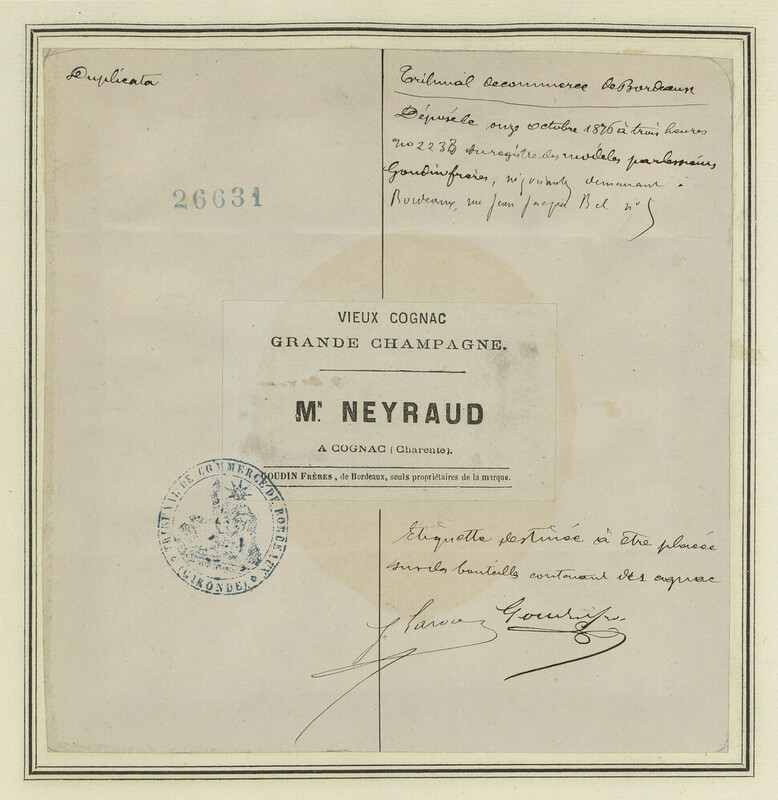 Duplicata
Tribunal de commerce de Bordeaux
Déposé le onze octobre 1876 à trois heures
no 2233 au registre des modèles par les sieurs
Goudin frères, négociants demeurant à
Bordeaux, rue Jean Jacques Bel no 5
26631
VIEUX COGNAC
GRANDE CHAMPAGNE.
Mr. NEYRAUD
A COGNAC (Charente).
GOUDIN FRÈRES, de Bordeaux, seuls propriétaires de la marque.
TRIBUNAL DE COMMERCE DE BORDEAUX
(GIRONDE)
Etiquette destinée à être placée
sur des bouteilles contenant des cognac
Goudin fr.